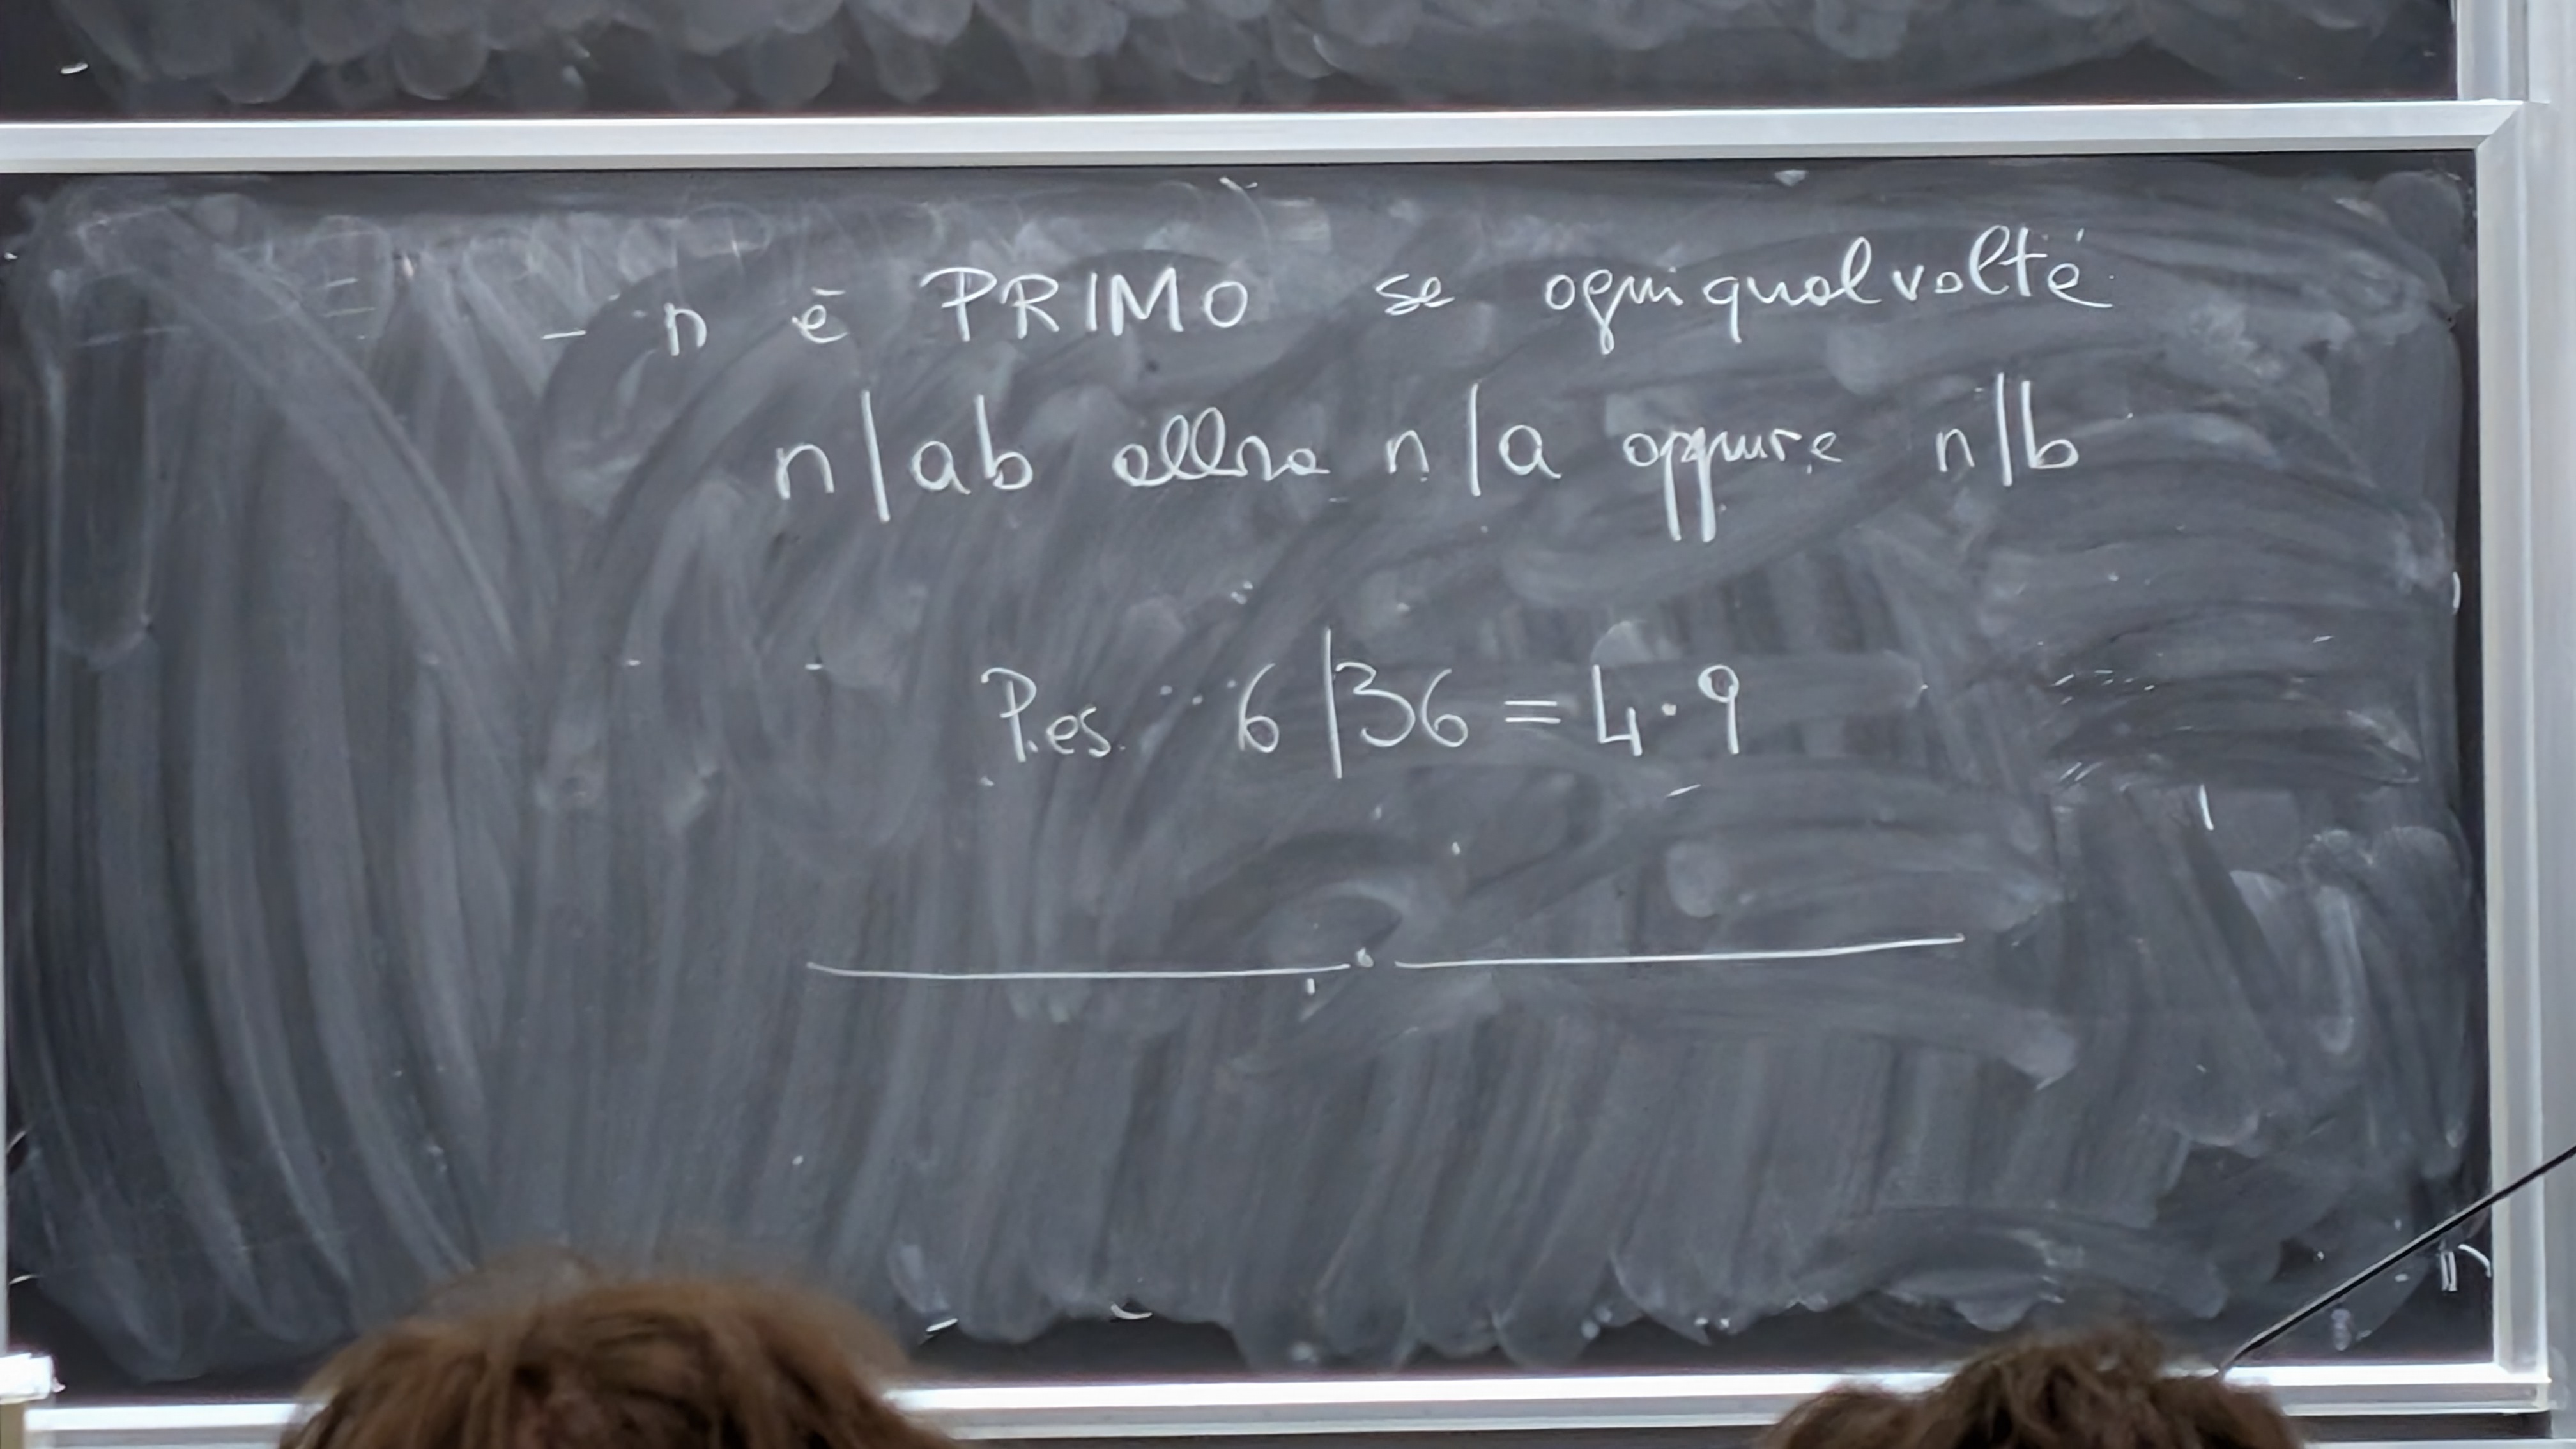 - n è PRIMO se ogniqualvolta
n|ab allora n|a oppure n|b
P.es. 6|36 = 4·9